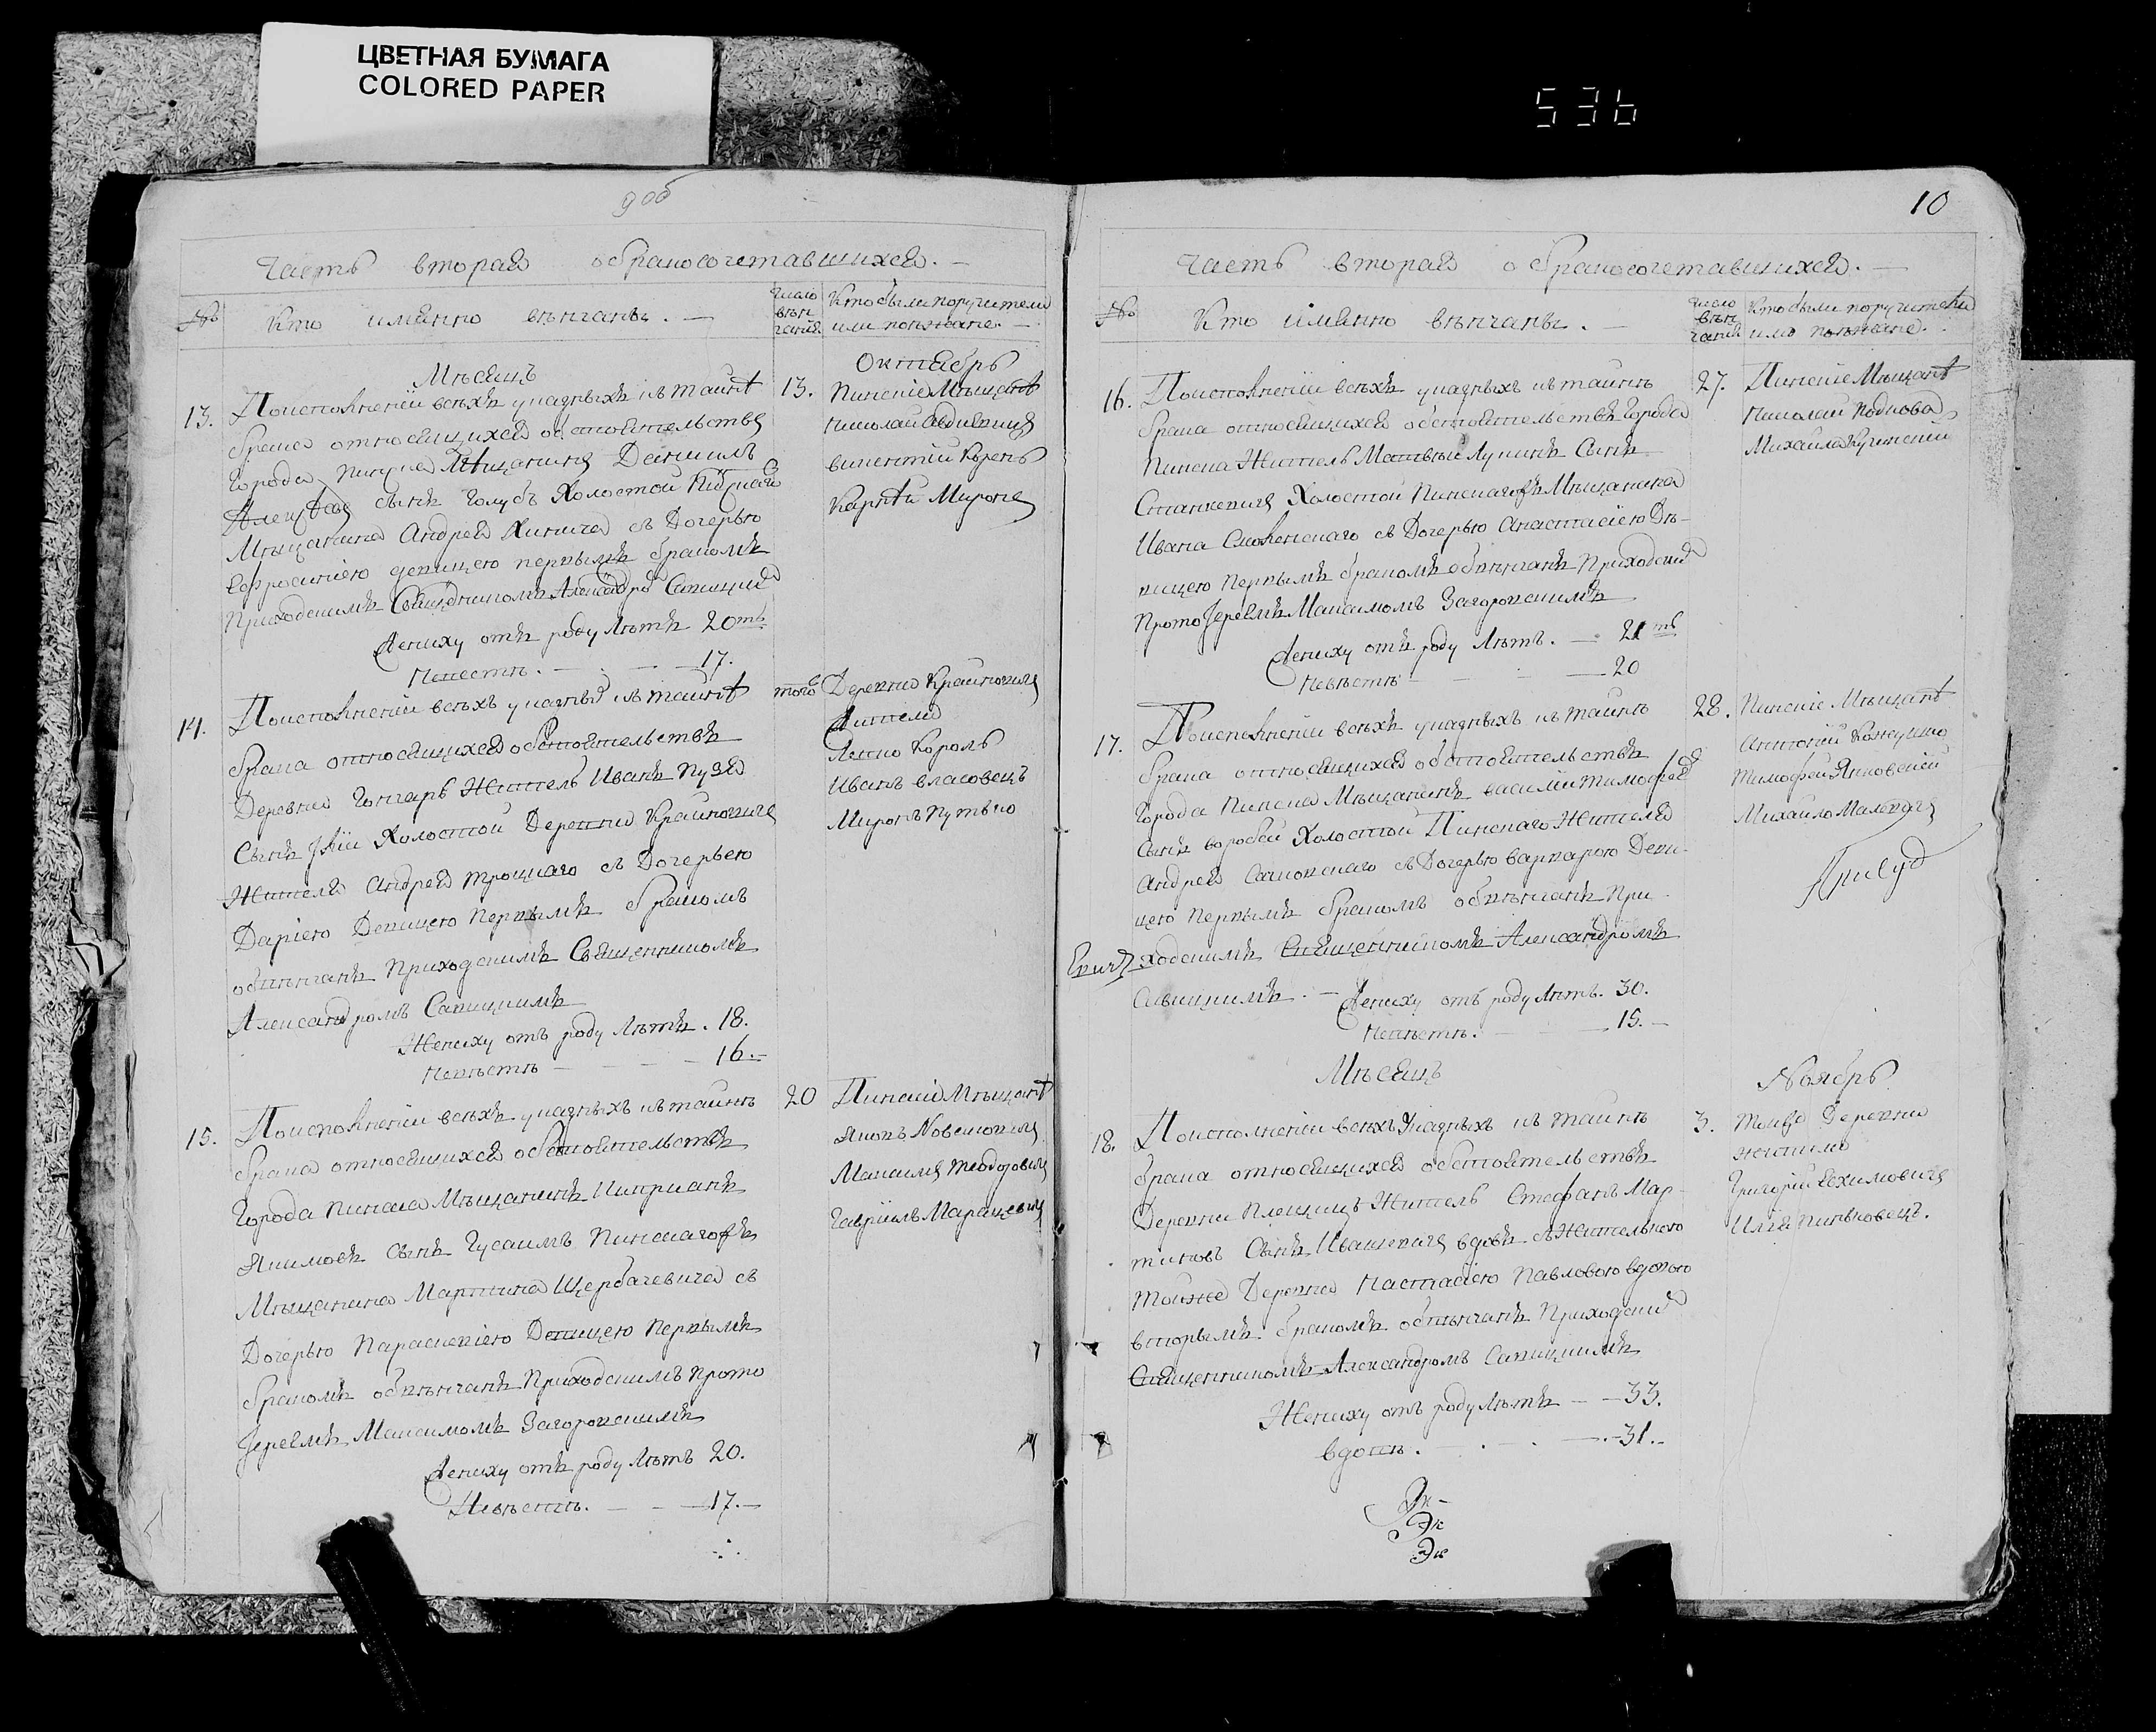 ЦВЕТНАЯ БУМАГА
COLORED PAPER
536
9 об
Часть вторая о бракосочетавшихся. —
№
Кто имянно вѣнчаны. —
число
вѣн
чаній
Кто были поручители
или поѣжане. —
Мѣсяцъ
Октябрь
13. По исполненіи всѣхъ указныхъ къ таинѣ
брака относящихся обстоятельствъ
города Пинска Мѣщанинъ Даніилъ
сынъ Голубъ Холостой Пинскаго
Мѣщанина Андрея Хинича съ Дочерью
Ефросиніею девицею первымъ бракомъ
Приходскимъ Священникомъ Александръ Савицкимъ
Жениху отъ роду Лѣтъ 20ть
Невестѣ. — 17.
13.
Пинскіе Мѣщане
Николай Авдіевичъ
викентій Корень
Мирона
14. По исполненіи всѣхъ указныхъ къ таинѣ
брака относящихся обстоятельствъ
Деревни Гончаръ Житель Иванъ
Сынъ Холостой Деревни Крайновичъ
Жителя Андрея Троцкаго съ Дочерьею
Даріею Девицею Первымъ бракомъ
обвѣнчанъ Приходскимъ Священникомъ
Александромъ Савицкимъ
Жениху отъ роду Лѣтъ. 18.
Невѣстѣ — 16. —
того
Деревни Крайновичъ
Жители
Король
Иванъ власовецъ
Миронъ Путько
15. По исполненіи всѣхъ указныхъ къ таинѣ
брака относящихся обстоятельствъ
города Пинска Мѣщанинъ Кипріанъ
Якимовъ Сынъ Гусакимъ Пинскагожъ
Мѣщанина Мартина Щербачевича съ
Дочерью Параскевіею Девицею Первымъ
бракомъ обвѣнчанъ Приходскимъ Прото
Іереемъ Максимомъ Загоровскимъ
Жениху отъ роду Лѣтъ 20.
Невѣстѣ. — 17. —
20
Пинскіе Мѣщане
Максимъ Теодоровичъ
Гавріилъ Марацевичъ
10
Часть вторая о бракосочетавшихся. —
№
Кто имянно вѣнчаны. —
число
вѣн
чаній
Кто были поручители
или поѣжане.
16. По исполненіи всѣхъ указныхъ къ таинѣ
брака относящихся обстоятельствъ города
Пинска Житель Матвѣй Лукинъ Сынъ
Станкевичъ Холостой Пинскагожъ Мѣщанина
Ивана Смоленскаго съ Дочерью Анастасіею Дѣ-
вицею Первымъ бракомъ обвѣнчанъ Приходскимъ
ПротоІереемъ Максимомъ Загоровскимъ
Жениху отъ роду Лѣтъ. — 21ть
Невѣстѣ — 20
27.
Пинскіе Мѣщане
Николай Подкова
Михайла
17. По исполненіи всѣхъ указныхъ къ таинѣ
брака относящихся обстоятельствъ
города Пинска Мѣщанинъ василій Тимофеевъ
Сынъ воробей Холостой Пинскаго Жителя
Андрея съ Дочерью варварою Деви-
цею Первымъ бракомъ обвѣнчанъ При-
ходскимъ Священникомъ Александромъ
Савицкимъ. — Жениху отъ роду Лѣтъ. 30.
Невѣстѣ. — 15. —
28.
Пинскіе Мѣщане
Антоній
Тимофей Янковскій
Михайло
Мѣсяцъ
Ноябрь
18. По исполненіи всѣхъ Указныхъ къ таинѣ
брака относящихся обстоятельствъ
Деревни Плещицъ Житель Стефанъ Мар-
тиновъ Сынъ Иващевичъ вдовъ съ Жителькою
Тойже Деревни Настасіею Павловою вдовою
вторымъ бракомъ обвѣнчанъ Приходскимъ
Священникомъ Александромъ Савицкимъ
Жениху отъ роду Лѣтъ — 33.
вдовѣ. — 31. —
3.
Тойже Деревни
жители
Григорій Евхимовичъ
Илія Пинковецъ.